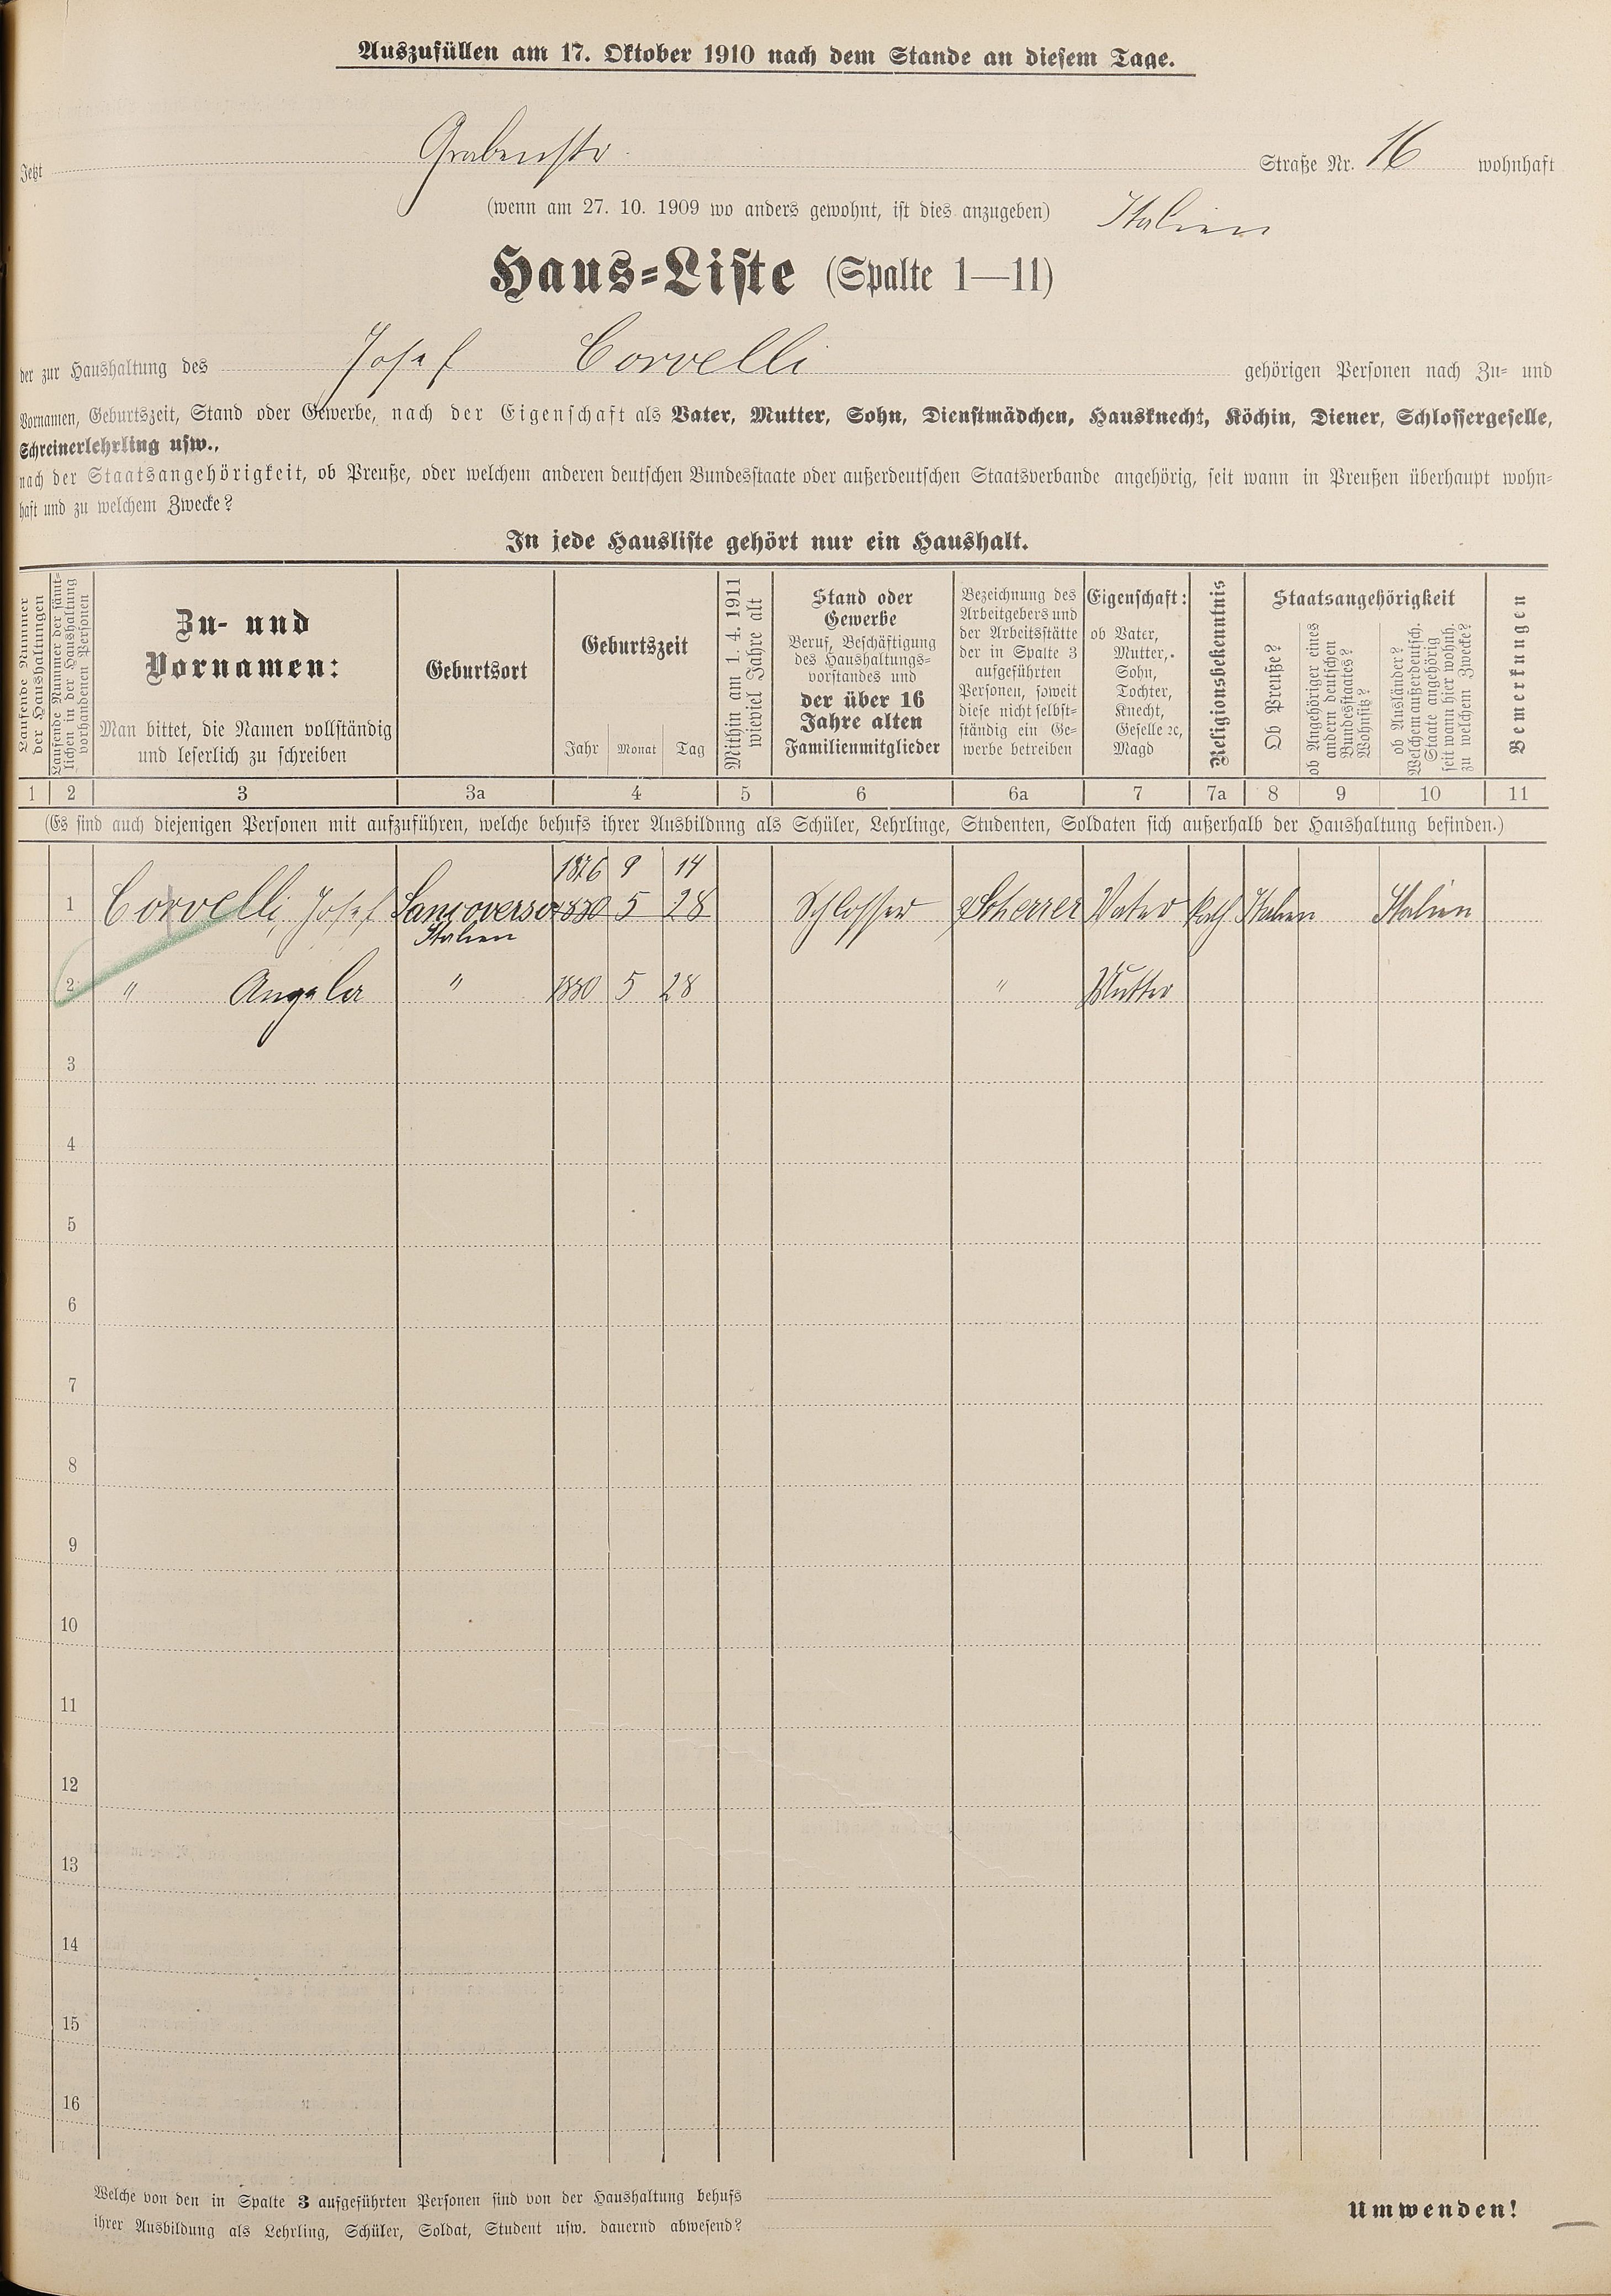 Auszufüllen am 17. Oktober 1910 nach dem Stande an diesem Tage.
Jetzt Grabenstr. Straße Nr. 16 wohnhaft
(wenn am 27. 10. 1909 wo anders gewohnt, ist dies anzugeben) Italien
Haus-Liste (Spalte 1—11)
der zur Haushaltung des Josef Corvelli gehörigen Personen nach Zu- und
Vornamen, Geburtszeit, Stand oder Gewerbe, nach der Eigenschaft als Vater, Mutter, Sohn, Dienstmädchen, Hausknecht, Köchin, Diener, Schlossergeselle,
Schreinerlehrling usw.,
nach der Staatsangehörigkeit, ob Preuße, oder welchem anderen deutschen Bundesstaate oder außerdeutschen Staatsverbande angehörig, seit wann in Preußen überhaupt wohn-
haft und zu welchem Zwecke?
In jede Hausliste gehört nur ein Haushalt.
Laufende Nummer
der Haushaltungen
Laufende Nummer der sämt-
lichen in der Haushaltung
vorhandenen Personen
Zu- und
Vornamen:
Man bittet, die Namen vollständig
und leserlich zu schreiben
Geburtsort
Geburtszeit
Jahr Monat Tag
Mithin am 1. 4. 1911
wieviel Jahre alt
Stand oder
Gewerbe
Beruf, Beschäftigung
des Haushaltungs-
vorstandes und
der über 16
Jahre alten
Familienmitglieder
Bezeichnung des
Arbeitgebers und
der Arbeitsstätte
der in Spalte 3
aufgeführten
Personen, soweit
diese nicht selbst-
ständig ein Ge-
werbe betreiben
Eigenschaft:
ob Vater,
Mutter,
Sohn,
Tochter,
Knecht,
Geselle ꝛc,
Magd
Religionsbekenntnis
Staatsangehörigkeit
Ob Preuße?
ob Angehöriger eines
andern deutschen
Bundesstaates?
Wohnsitz?
ob Ausländer?
Welchem außerdeutsch.
Staate angehörig
seit wann hier wohnh.
zu welchem Zwecke?
Bemerkungen
1 2 3 3a 4 5 6 6a 7 7a 8 9 10 11
(Es sind auch diejenigen Personen mit aufzuführen, welche behufs ihrer Ausbildung als Schüler, Lehrlinge, Studenten, Soldaten sich außerhalb der Haushaltung befinden.)
1876 9 14
1 Corvelli, Josef 1880 5 28 Schlosser Scherrer Vater kath Italien Italien
Italien
2 " Angela " 1880 5 28 " Mutter
3
4
5
6
7
8
9
10
11
12
13
14
15
16
Welche von den in Spalte 3 aufgeführten Personen sind von der Haushaltung behufs
ihrer Ausbildung als Lehrling, Schüler, Soldat, Student usw. dauernd abwesend?
Umwenden!